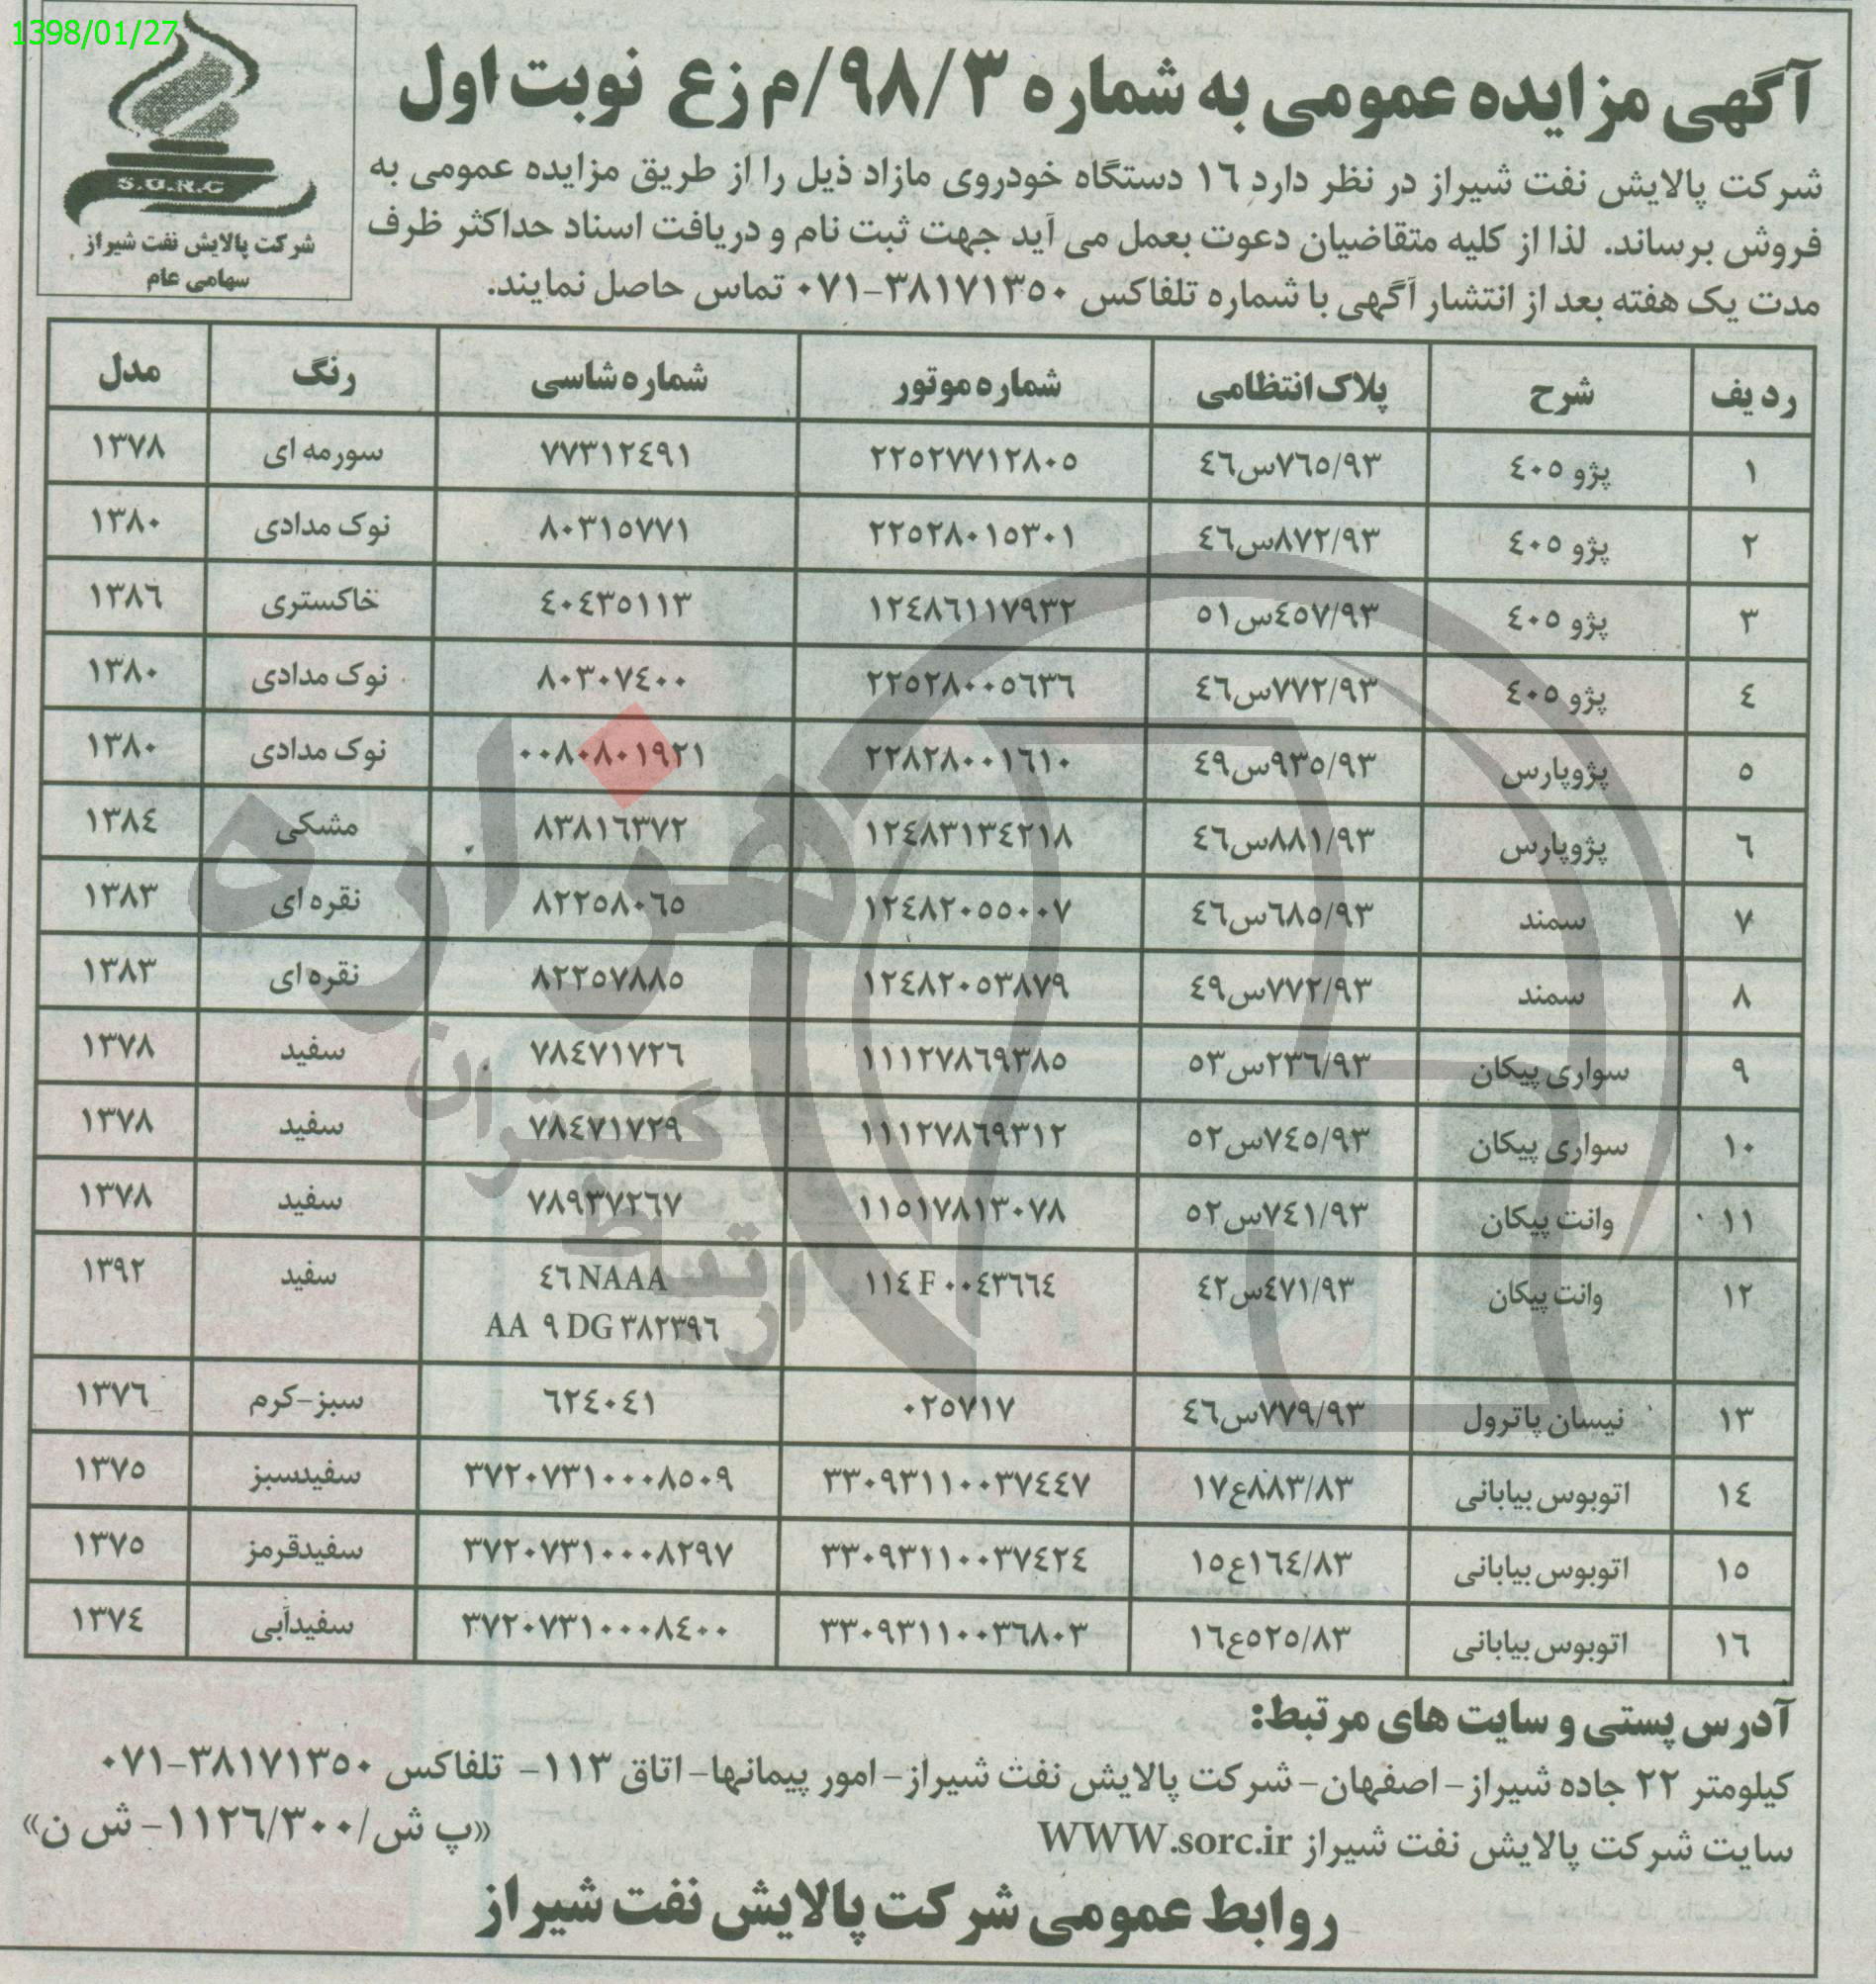 1398/01/27
S.O.R.C
شرکت پالایش نفت شیراز
سهامی عام
آگهی مزایده عمومی به شماره ۹۸/۳/م زع نوبت اول
شرکت پالایش نفت شیراز در نظر دارد ۱٦ دستگاه خودروی مازاد ذیل را از طریق مزایده عمومی به
فروش برساند. لذا از کلیه متقاضیان دعوت بعمل می آید جهت ثبت نام و دریافت اسناد حداکثر ظرف
مدت یک هفته بعد از انتشار آگهی با شماره تلفاکس ۳۸۱۷۱۳٥۰-۰۷۱ تماس حاصل نمایند.
ردیف شرح پلاک انتظامی شماره موتور شماره شاسی رنگ مدل
۱ پژو ٤۰٥ ۷٦٥/۹۳س٤٦ ۲۲٥۲۷۷۱۲۸۰٥ ۷۷۳۱۲٤۹۱ سورمه ای ۱۳۷۸
۲ پژو ٤۰٥ ۸۷۲/۹۳س٤٦ ۲۲٥۲۸۰۱٥۳۰۱ ۸۰۳۱٥۷۷۱ نوک مدادی ۱۳۸۰
۳ پژو ٤۰٥ ٤٥۷/۹۳س٥۱ ۱۲٤۸٦۱۱۷۹۳۲ ٤۰٤۳٥۱۱۳ خاکستری ۱۳۸٦
٤ پژو ٤۰٥ ۷۷۲/۹۳س٤٦ ۲۲٥۲۸۰۰٥٦۳٦ ۸۰۳۰۷٤۰۰ نوک مدادی ۱۳۸۰
٥ پژوپارس ۹۳٥/۹۳س٤۹ ۲۲۸۲۸۰۰۱٦۱۰ ۰۰۸۰۸۰۱۹۲۱ نوک مدادی ۱۳۸۰
٦ پژوپارس ۸۸۱/۹۳س٤٦ ۱۲٤۸۳۱۳٤۲۱۸ ۸۳۸۱٦۳۷۲ مشکی ۱۳۸٤
۷ سمند ٦۸٥/۹۳س٤٦ ۱۲٤۸۲۰٥٥۰۰۷ ۸۲۲٥۸۰٦٥ نقره ای ۱۳۸۳
۸ سمند ۷۷۲/۹۳س٤۹ ۱۲٤۸۲۰٥۳۸۷۹ ۸۲۲٥۷۸۸٥ نقره ای ۱۳۸۳
۹ سواری پیکان ۲۳٦/۹۳س٥۳ ۱۱۱۲۷۸٦۹۳۸٥ ۷۸٤۷۱۷۲٦ سفید ۱۳۷۸
۱۰ سواری پیکان ۷٤٥/۹۳س٥۲ ۱۱۱۲۷۸٦۹۳۱۲ ۷۸٤۷۱۷۲۹ سفید ۱۳۷۸
۱۱ وانت پیکان ۷٤۱/۹۳س٥۲ ۱۱٥۱۷۸۱۳۰۷۸ ۷۸۹۳۷۲٦۷ سفید ۱۳۷۸
۱۲ وانت پیکان ٤۷۱/۹۳س٤۲ ۱۱٤ F ۰۰٤۳٦٦٤ ٤٦ NAAA سفید ۱۳۹۲
AA ۹ DG ۳۸۲۳۹٦
۱۳ نیسان پاترول ۷۷۹/۹۳س٤٦ ۰۲٥۷۱۷ ٦۲٤۰٤۱ سبز-کرم ۱۳۷٦
۱٤ اتوبوس بیابانی ۸۸۳/۸۳ع۱۷ ۳۳۰۹۳۱۱۰۰۳۷٤٤۷ ۳۷۲۰۷۳۱۰۰۰۸٥۰۹ سفیدسبز ۱۳۷٥
۱٥ اتوبوس بیابانی ۱٦٤/۸۳ع۱٥ ۳۳۰۹۳۱۱۰۰۳۷٤۲٤ ۳۷۲۰۷۳۱۰۰۰۸۲۹۷ سفیدقرمز ۱۳۷٥
۱٦ اتوبوس بیابانی ٥۲٥/۸۳ع۱٦ ۳۳۰۹۳۱۱۰۰۳٦۸۰۳ ۳۷۲۰۷۳۱۰۰۰۸٤۰۰ سفیدآبی ۱۳۷٤
هزاره
گستران
ارتباط
آدرس پستی و سایت های مرتبط:
کیلومتر ۲۲ جاده شیراز- اصفهان- شرکت پالایش نفت شیراز- امور پیمانها- اتاق ۱۱۳- تلفاکس ۳۸۱۷۱۳٥۰-۰۷۱
سایت شرکت پالایش نفت شیراز WWW.sorc.ir «پ ش/۱۱۲٦/۳۰۰- ش ن»
روابط عمومی شرکت پالایش نفت شیراز